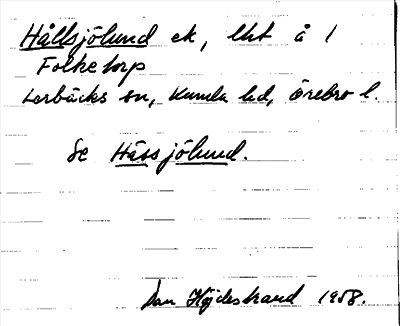 Hållsjölund ek, lht å 1
Folketorp
Lerbäcks sn, Kumla hd, Örebro l.
Se Hässjölund.
Dan Höjdestrand 1958.